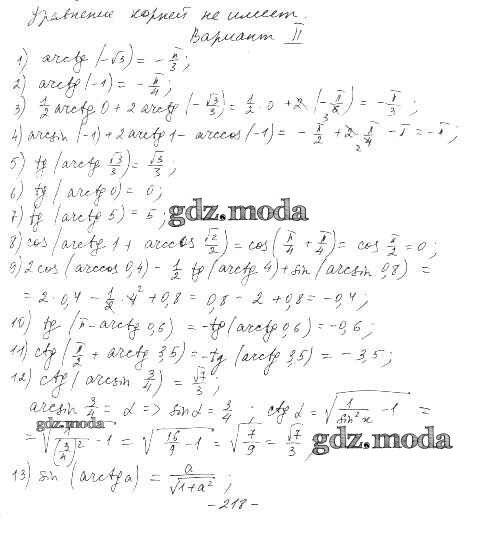 Уравнение корней не имеет.
Вариант II
1) arctg(-√3) = -π/3;
2) arctg(-1) = -π/4;
3) 1/2 arctg 0 + 2 arctg(-√3/3) = 1/2 · 0 + 2(-π/6) = -π/3;
4) arcsin(-1) + 2 arctg 1 - arccos(-1) = -π/2 + 2 π/4 - π = -π;
5) tg(arctg √3/3) = √3/3;
6) tg(arctg 0) = 0;
7) tg(arctg 5) = 5;
gdz.moda
8) cos(arctg 1 + arccos √2/2) = cos(π/4 + π/4) = cos π/2 = 0;
9) 2 cos(arccos 0,4) - 1/2 tg(arctg 4) + sin(arcsin 0,8) =
= 2 · 0,4 - 1/2 · 4 + 0,8 = 0,8 - 2 + 0,8 = -0,4;
10) tg(π - arctg 0,6) = -tg(arctg 0,6) = -0,6;
11) ctg(π/2 + arctg 3,5) = -tg(arctg 3,5) = -3,5;
12) ctg(arcsin 3/4) = √7/3;
arcsin 3/4 = α => sin α = 3/4; ctg α = √(1/sin²x - 1) =
gdz.moda
= √(1/(3/4)² - 1) = √(16/9 - 1) = √(7/9) = √7/3;
gdz.moda
13) sin(arctg a) = a/√(1+a²);
- 218 -